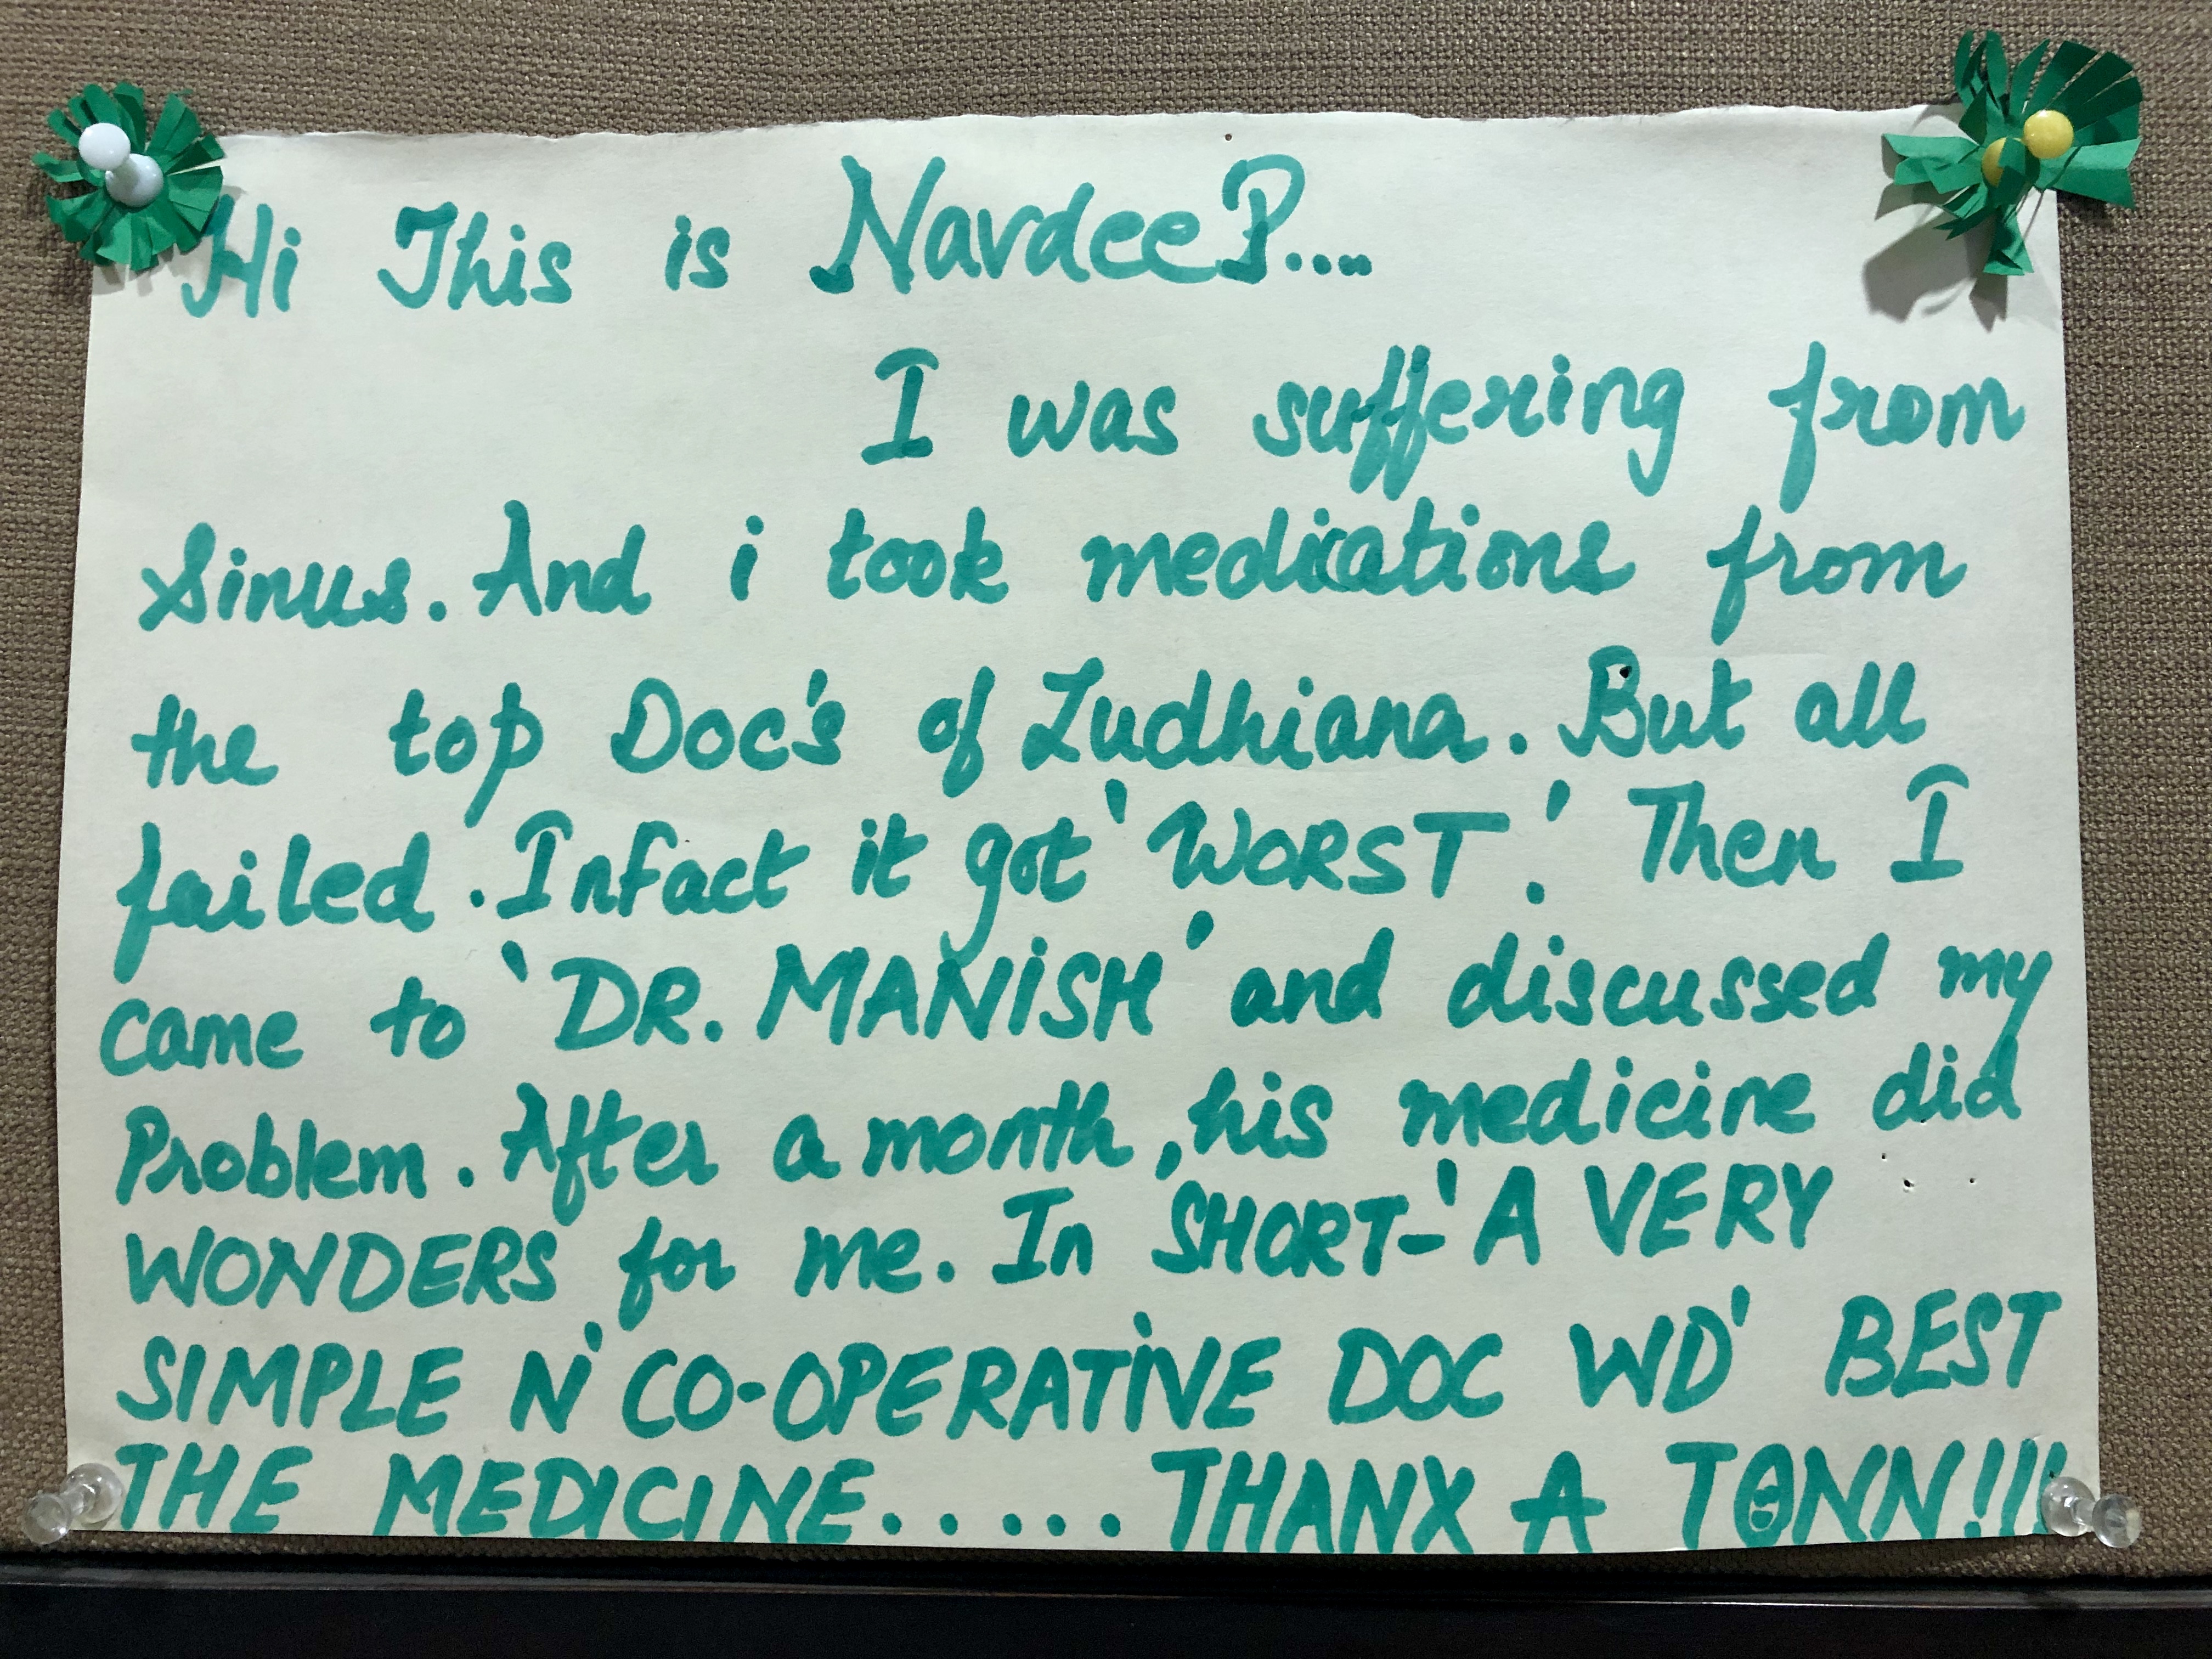 Hi This is NavdeeP....
I was suffering from
Sinus. And i took medications from
the top Doc's of Ludhiana. But all
failed. Infact it got 'WORST'. Then I
came to 'DR. MANiSH' and discussed my
Problem. After a month, his medicine did
WONDERS for me. In SHORT-'A VERY
SIMPLE N' CO-OPERATiVE DOC WD' BEST
THE MEDICINE..... THANX A TONN!!!